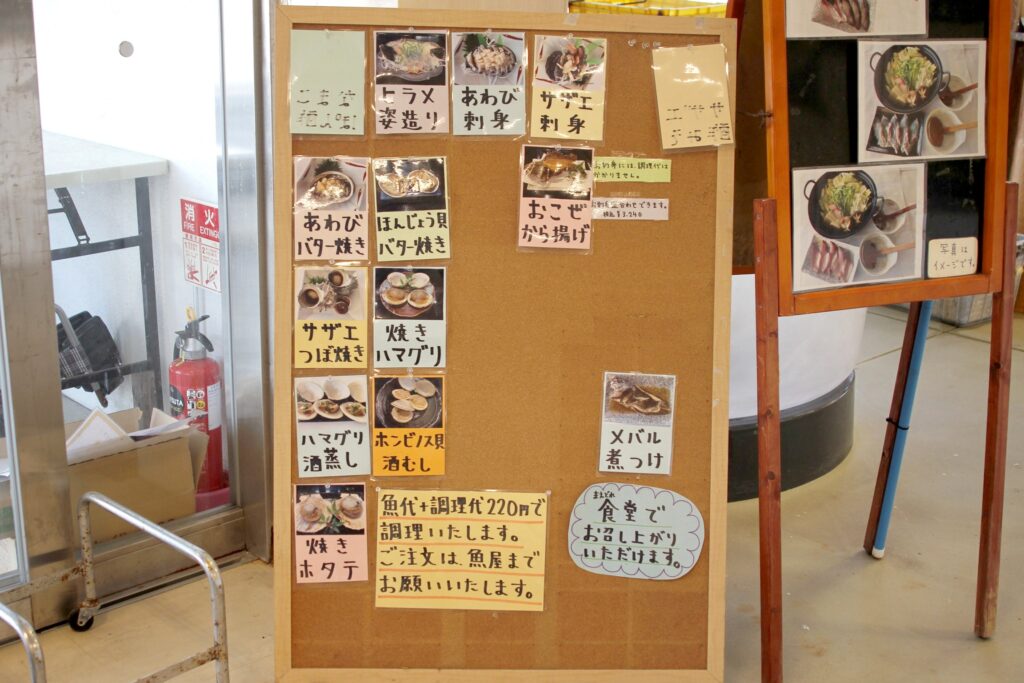 ヒラメ
姿造り
あわび
刺身
サザエ
刺身
あわび
バター焼き
ほんじょう貝
バター焼き
おこぜ
から揚げ
お刺身には、調理代は
かかりません。
サザエ
つぼ焼き
焼き
ハマグリ
ハマグリ
酒蒸し
ホンビノス貝
酒むし
メバル
煮つけ
焼き
ホタテ
魚代+調理代220円で
調理いたします。
ご注文は、魚屋まで
お願いいたします。
食堂で
お召し上がり
いただけます。
写真は
イメージです。
消火
FIRE